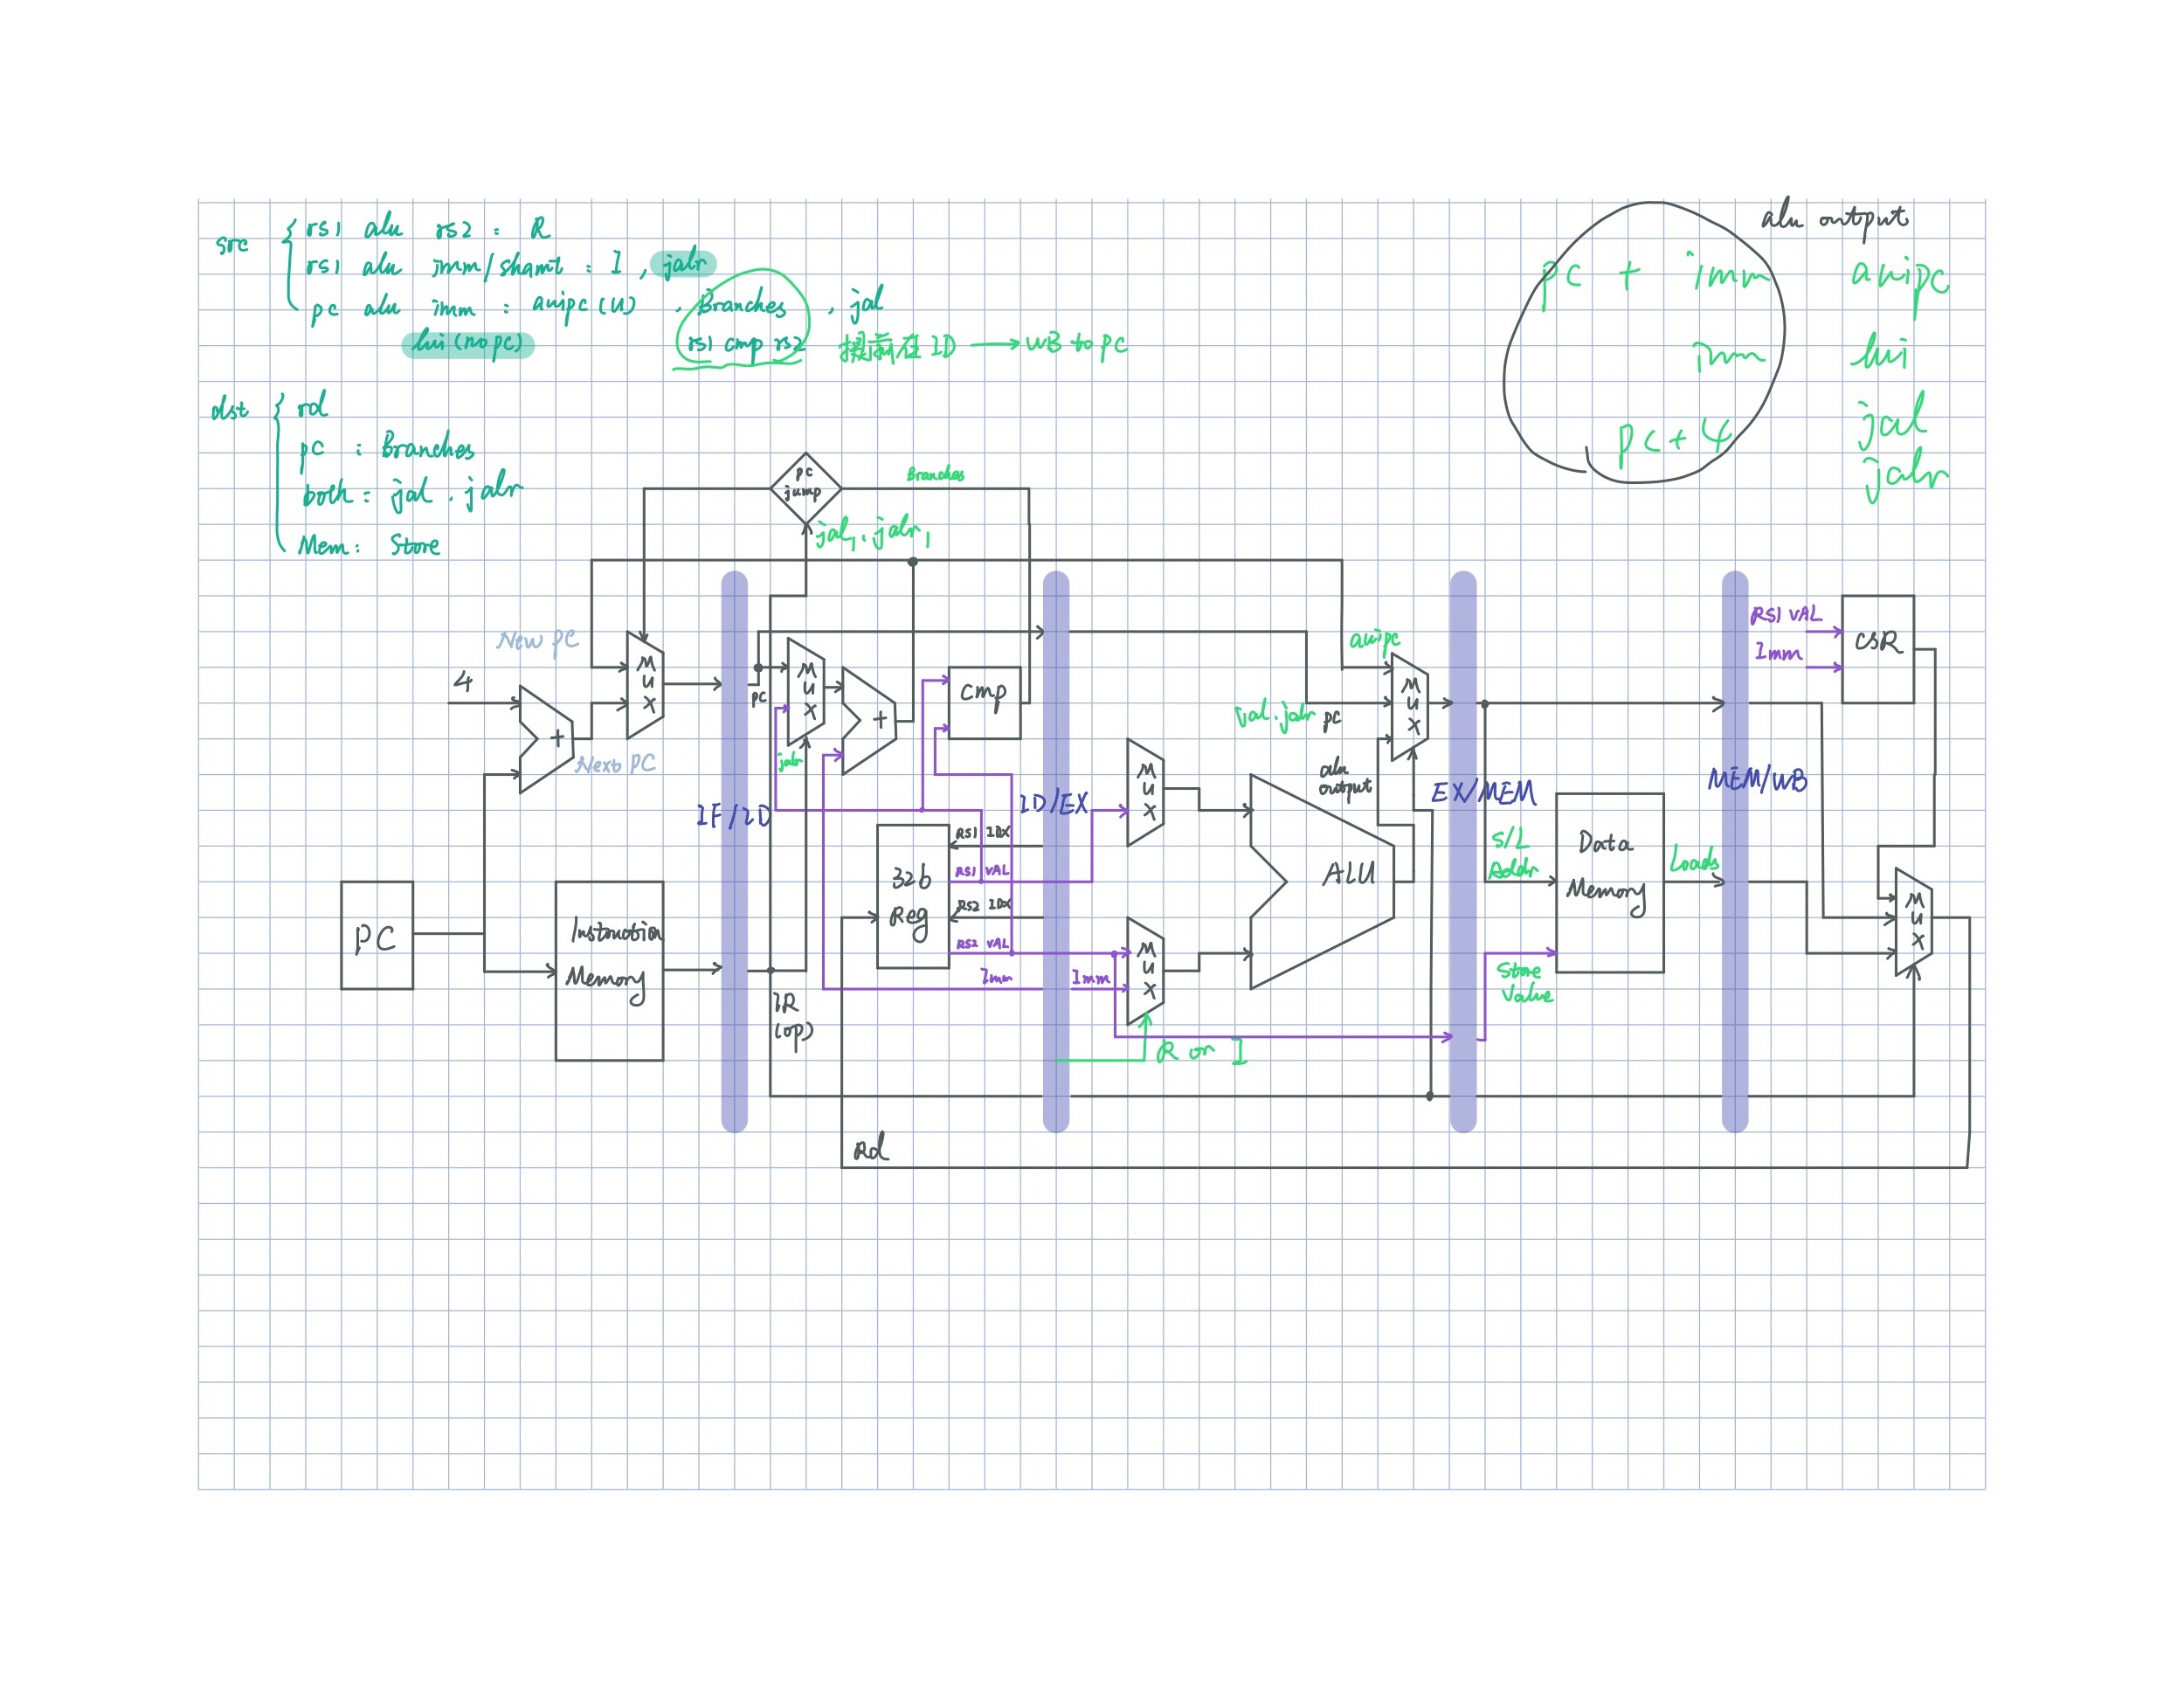 src
rs1 alu rs2 : R
rs1 alu imm/shamt : I , jalr
pc alu imm : auipc (U) , Branches , jal
lui (no pc)
rs1 cmp rs2
提高在 ID → WB to pc
dst
rd
pc : Branches
both : jal . jalr
Mem : Store
alu output
pc + imm auipc
imm lui
pc + 4 jal
jalr
pc
jump
Branches
jal, jalr,
New PC
4
+
Next PC
MUX
PC
Instruction
Memory
IF/ID
pc
MUX
jalr
+
cmp
32b
Reg
RS1 IDX
RS1 VAL
RS2 IDX
RS2 VAL
Imm
IR
(op)
Rd
ID/EX
Imm
MUX
MUX
R or I
ALU
auipc
jal.jalr pc
alu
output
MUX
EX/MEM
S/L
Addr
Store
Value
Data
Memory
Loads
MEM/WB
RS1 VAL
Imm
CSR
MUX